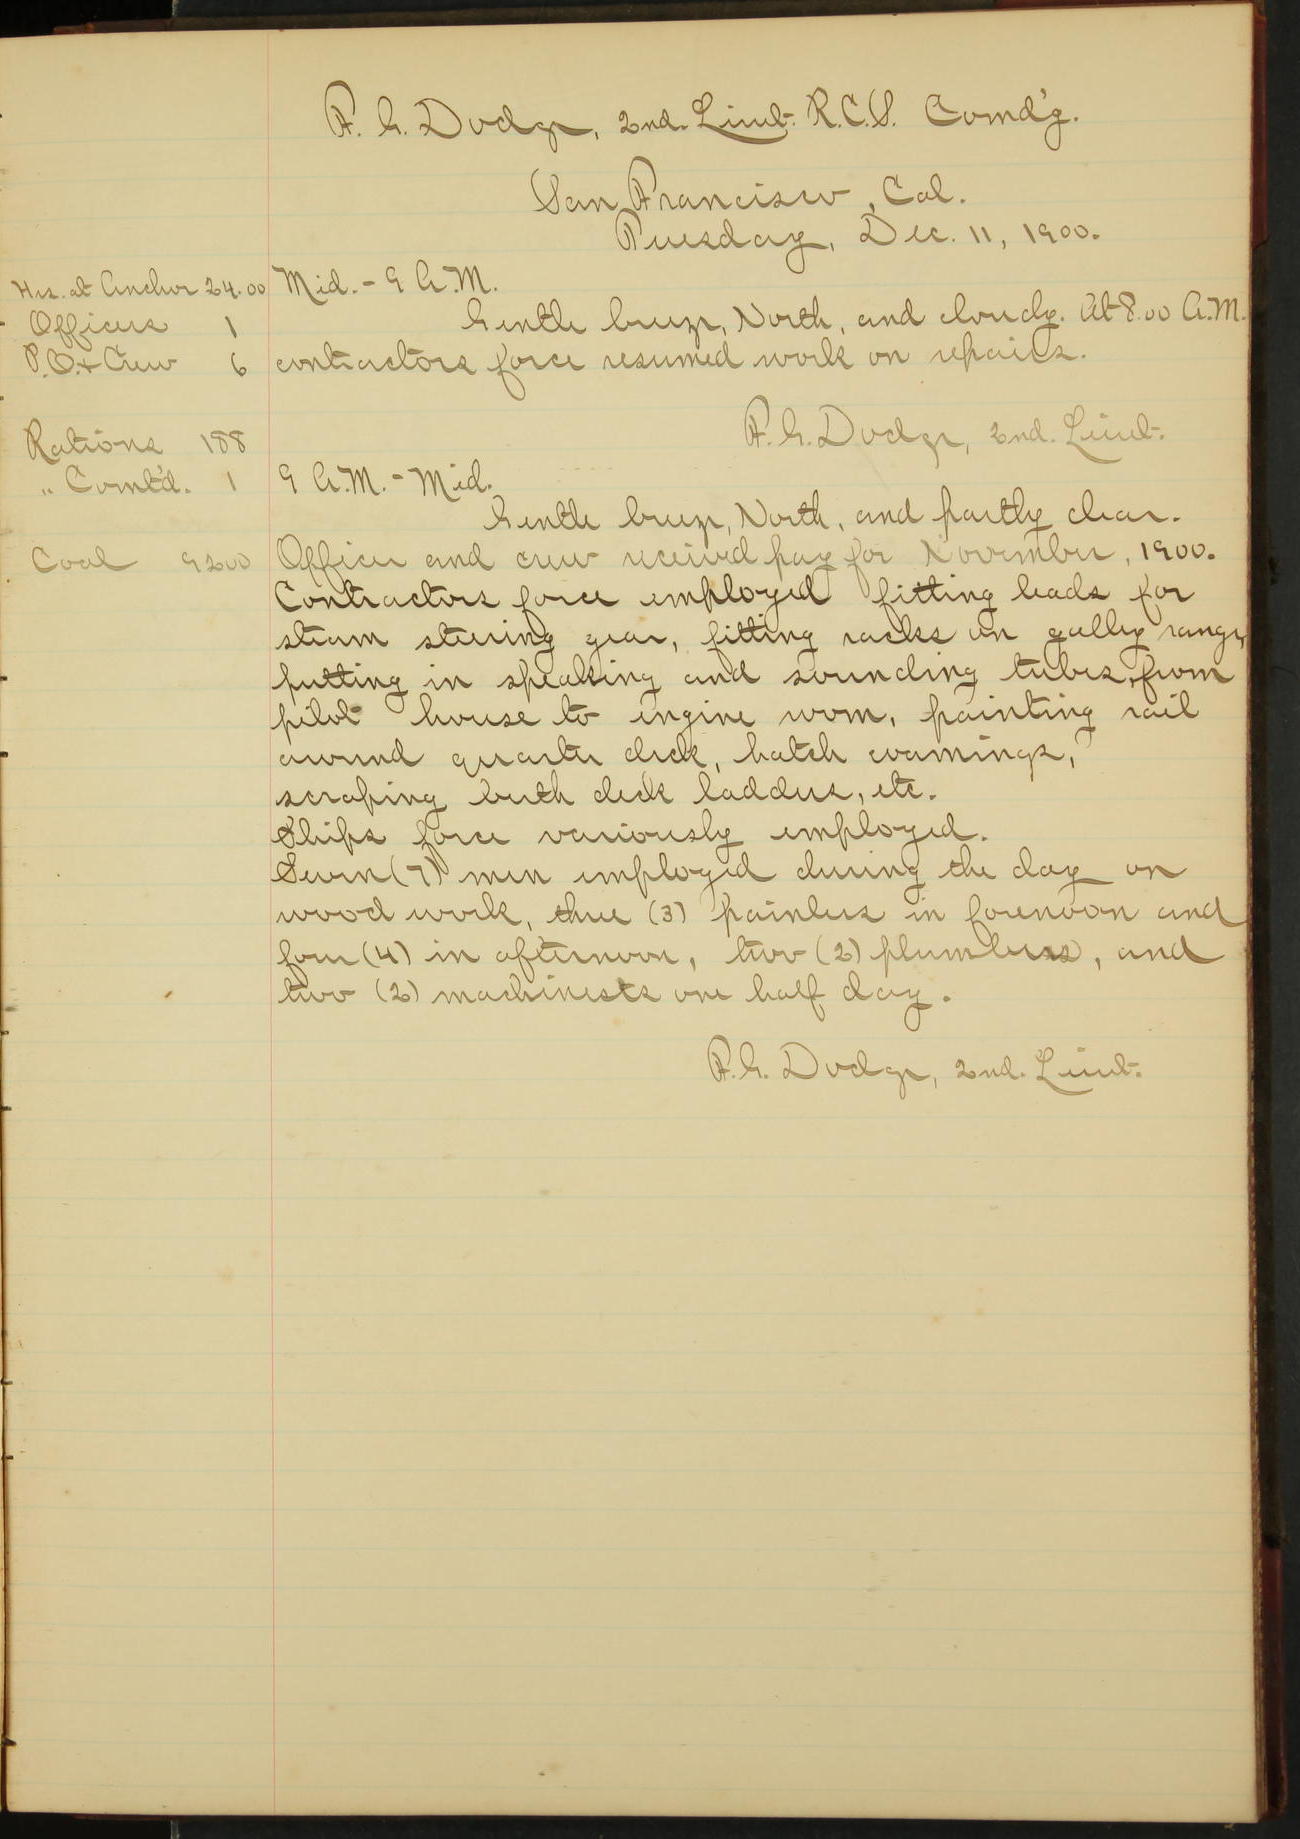 F. G. Dodge, 2nd. Lieut. R.C.S. Comd'g.
San Francisco, Cal.
Tuesday, Dec. 11, 1900.
Hrs. at Anchor 24.00 Mid. - 9 A.M.
Officers 1 Gentle breeze, North, and cloudy. At 8.00 A.M.
P.O. + Crew 6 contractors force resumed work on repairs.
F. G. Dodge, 2nd. Lieut.
Rations 188
" Comt'd. 1 9 A.M. - Mid.
Gentle breeze, North, and partly clear.
Coal 9200 Officer and crew received pay for November, 1900.
Contractors force employed fitting leads for
steam steering gear, fitting racks on galley range,
putting in speaking and sounding tubes, from
pilot house to engine room, painting rail
around quarter deck, hatch coamings,
scraping berth deck ladders, etc.
Ships force variously employed.
Seven (7) men employed during the day on
wood work, three (3) painters in forenoon and
four (4) in afternoon, two (2) plumbers, and
two (2) machinests one half day.
F. G. Dodge, 2nd. Lieut.